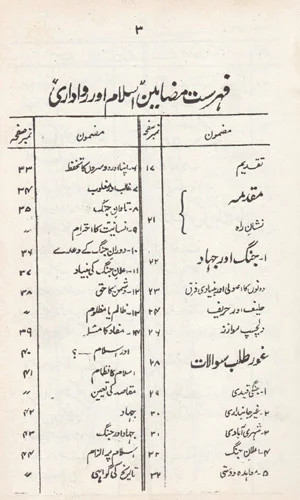 ۳
فہرست مضامین اسلام اور رواداری
مضمون نمبر صفحہ
تقدیم ۱۷
مقدمہ
نشان راہ ۲۱
۱- جنگ اور جہاد ۲۲
دونوں کا اصولی اور بنیادی فرق ۲۳
حلیف اور حریف ۲۴
دلچسپ موازنہ ۲۶
غور طلب سوالات ۲۸
۱- جنگی قیدی ۲۹
۲- غیر جانبداری ۳۰
۳- شہری آبادی ۳۱
۴- اعلان جنگ ۳۲
۵- معاہدہ دوستی ۳۲
مضمون نمبر صفحہ
۶- اپنا اور دوسروں کا تحفظ ۳۳
۷- غالب اور مغلوب ۳۴
۸- تاوان جنگ ۳۵
۹- انسانیت کا احترام 〃
۱۰- دوران جنگ کے وعدے ۳۶
۱۱- اعلان جنگ کی بنیاد ۳۷
۱۲- دشمن کا حق ۳۸
۱۳- ظالم یا مظلوم 〃
۱۴- مفاد کا مسئلہ ۳۹
اور اسلام — ؟ ۴۰
اسلام کا نظام ۴۱
مقاصد کی تعیین 〃
جہاد ۴۲
جہاد اور جنگ ۴۳
اسلام پر الزام ۴۴
تاریخ کی گواہی 〃